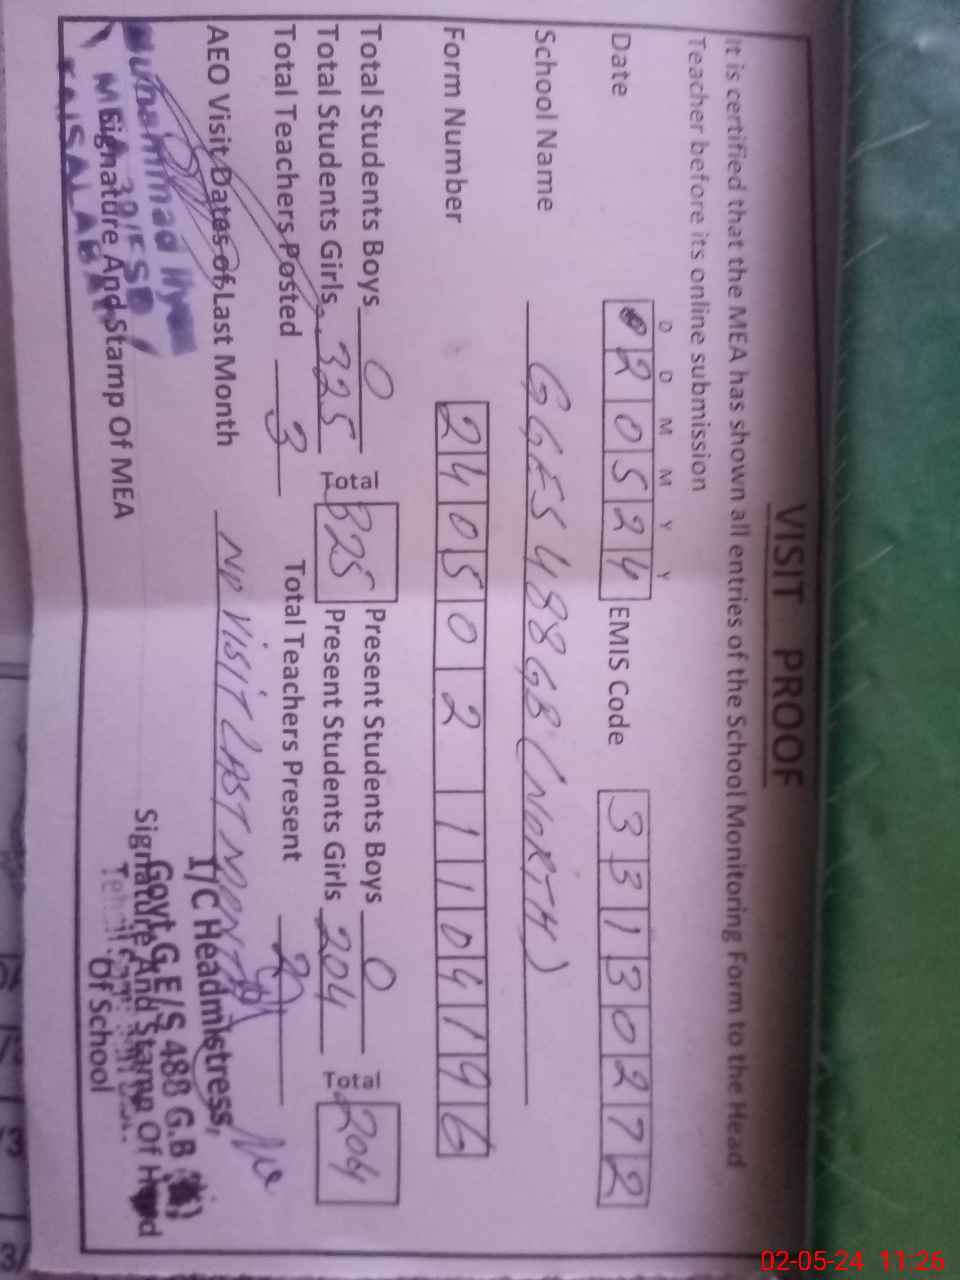 VISIT PROOF
It is certified that the MEA has shown all entries of the School Monitoring Form to the Head
Teacher before its online submission
D D M M Y Y
Date 020524 EMIS Code 33130272
School Name GGES 488 GB (NORTH)
Form Number 240502110419 6
Total Students Boys 0 Present Students Boys 0
Total Students Girls 325 Total 325 Present Students Girls 204 Total 204
Total Teachers Posted 3 Total Teachers Present 2
AEO Visit Dates of Last Month NO VISIT LAST MONTH
Muhammad Ilyas
MEA 39/FSD
FAISALABAD
Signature And Stamp Of MEA
I/C Headmistress,
Govt G.E/S 488 G.B
Signature And Stamp Of Head
Of School
02-05-24 11:26